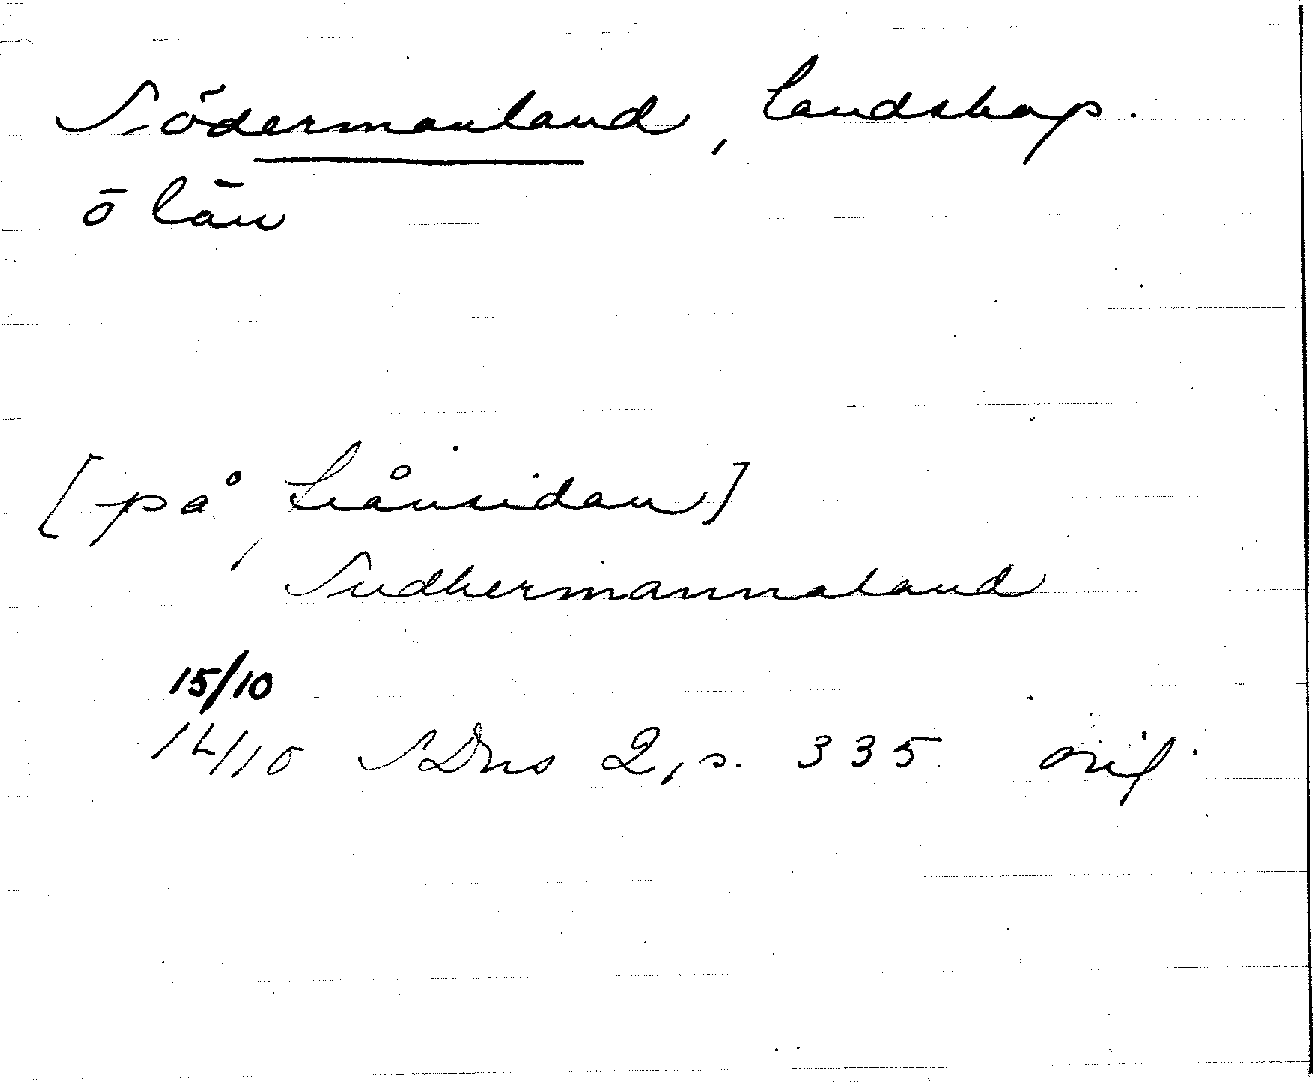 Södermanland, landskap.
o län
[på frånsidan]
Sudhermannaland
15/10
14/10 SDns 2, s. 335 orig.